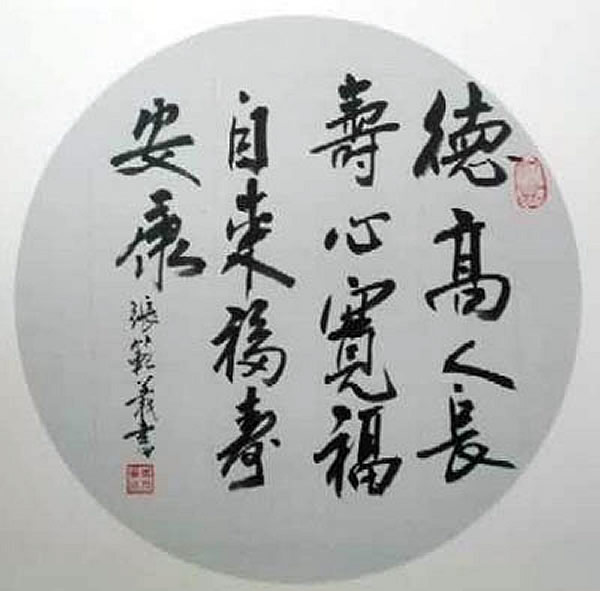 德高人長
壽心寬福
自來福壽
安康
張範義書